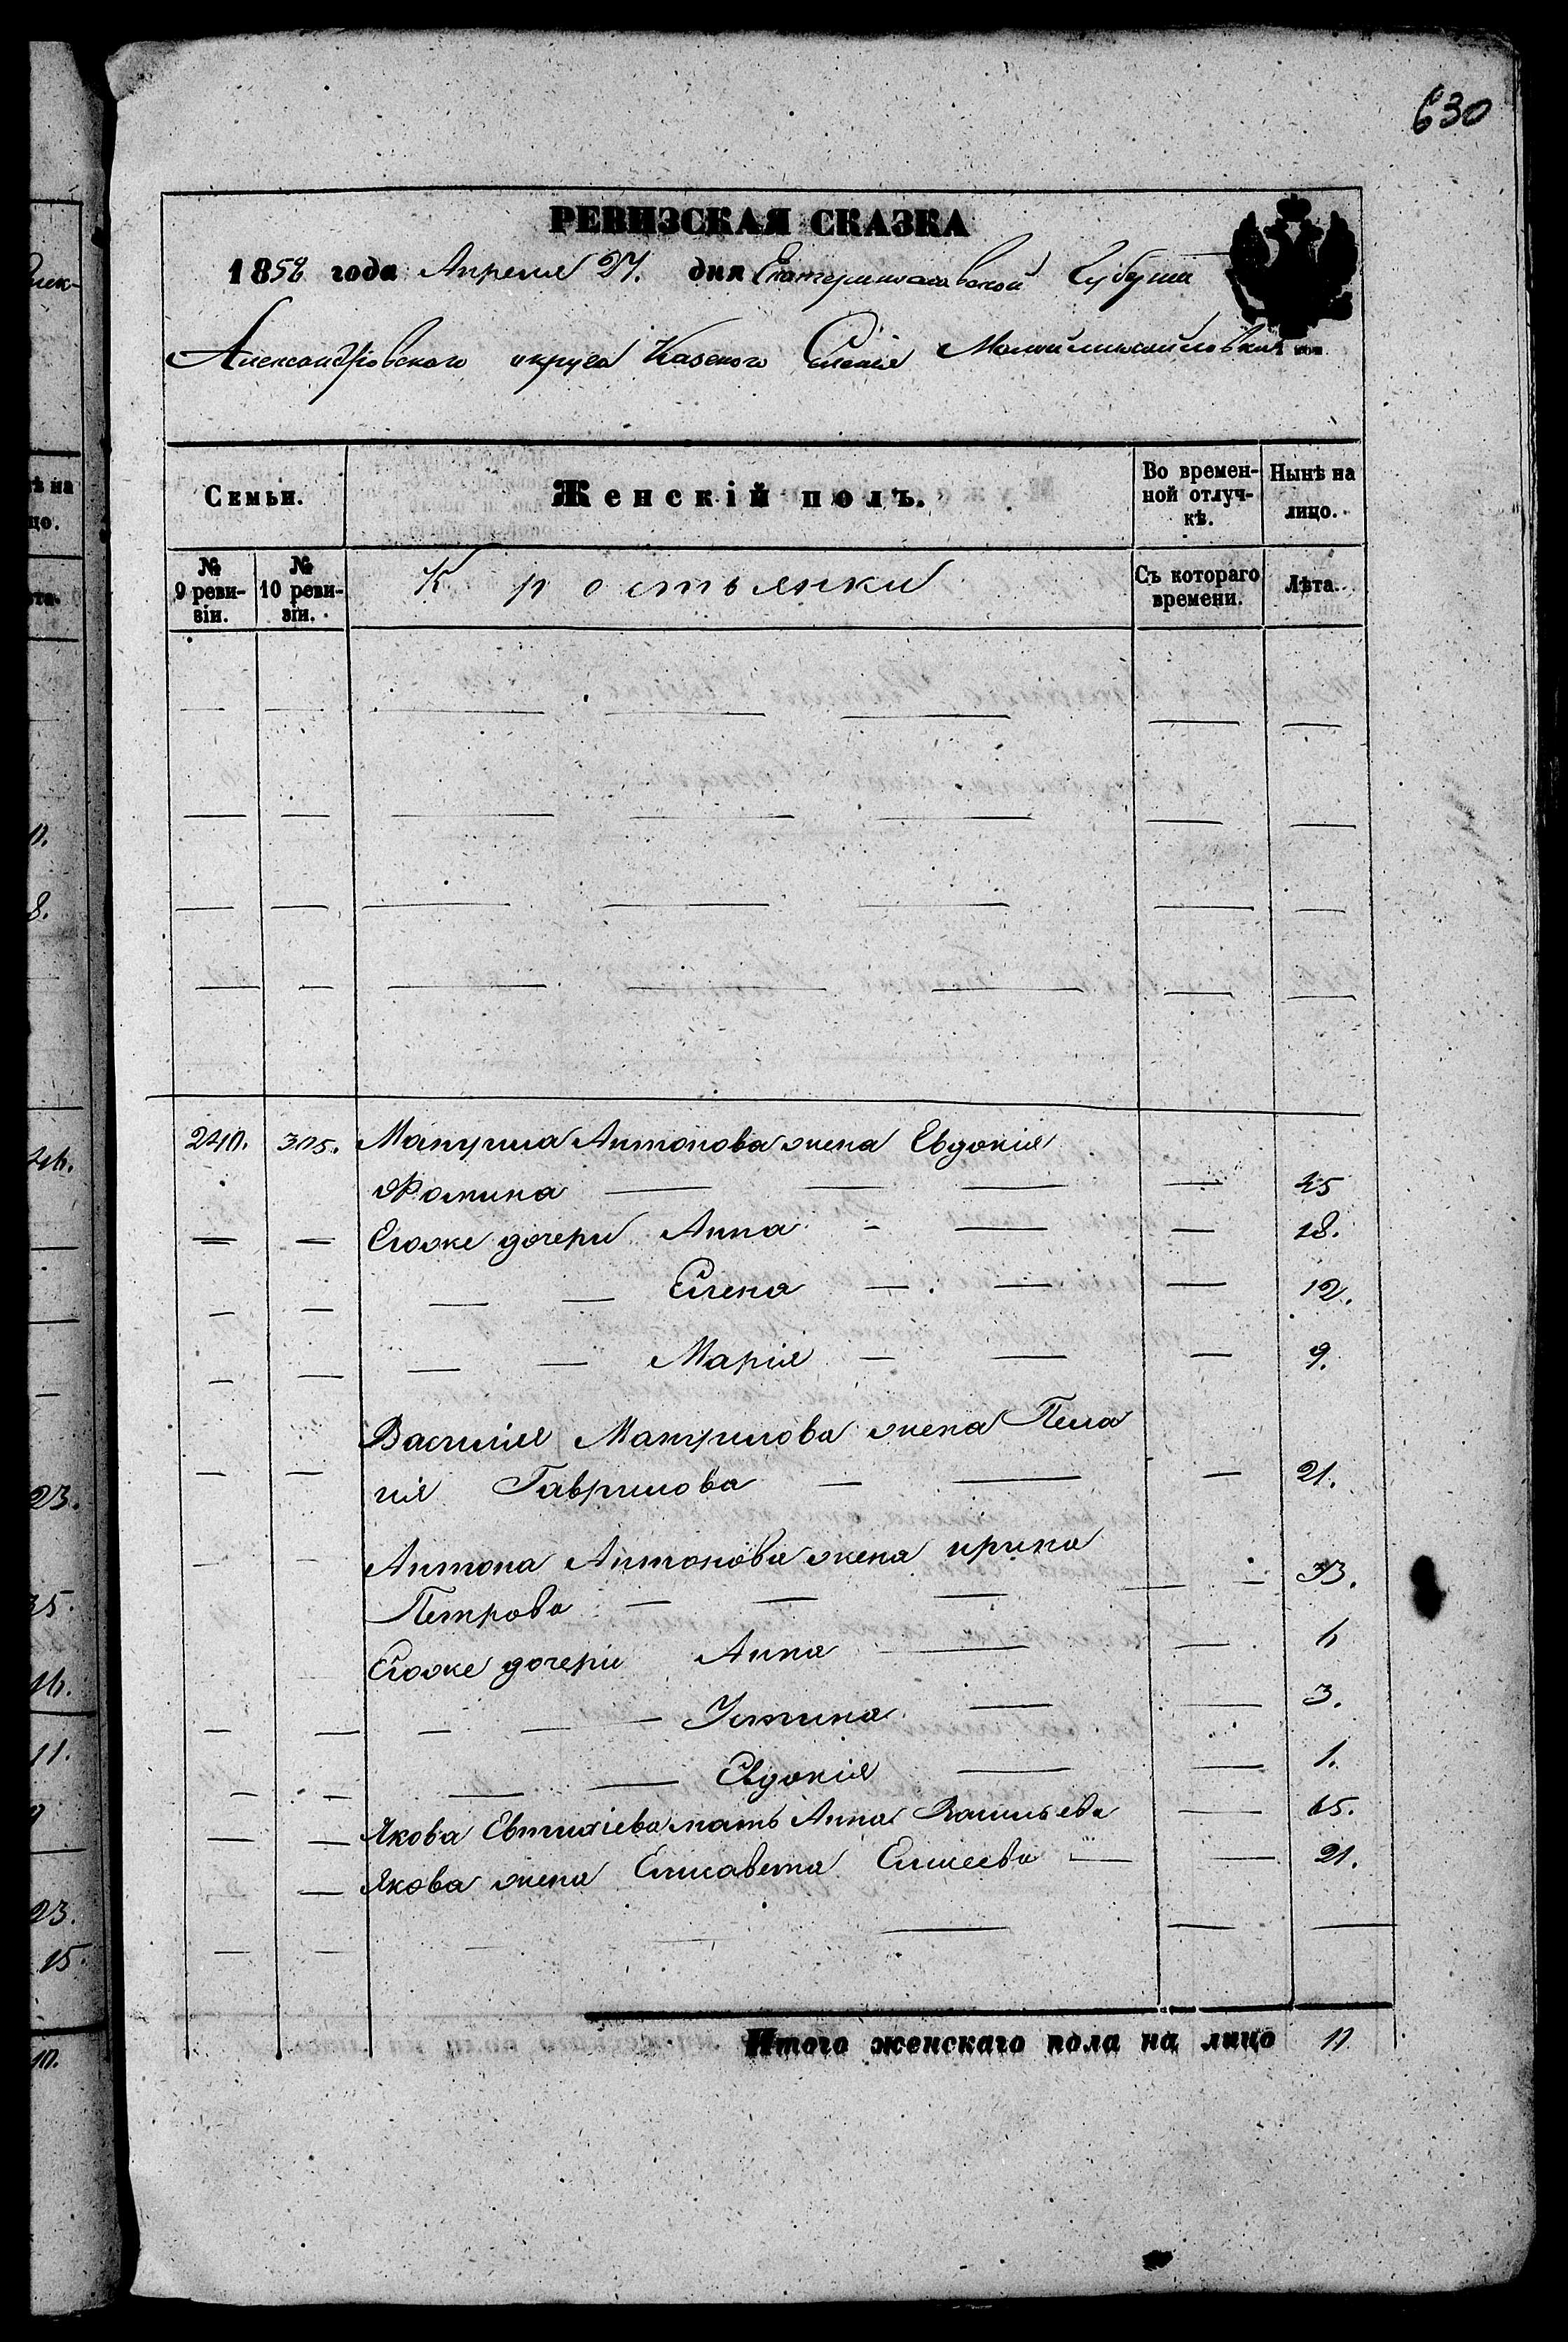 630
РЕВИЗСКАЯ СКАЗКА
1858 года Апреля 27. дня Екатеринославской Губерніи
Александровского округа Казеного Селенія Малоймихайловки
Семьи. Женскій полъ. Во времен-ной отлуч-кѣ. Нынѣ на лицо.
№ 9 реви-зіи. № 10 реви-зіи. Крестьянки Съ котораго времени. Лѣта.
240. 305. Мануила Антонова жена Евдокія
Фомина — — — — 45
Егоже дочери Анна - — — 18.
— — Елена — — — 12.
— — Марія — — — 9.
Василия Мануилова жена Пела
гия Гаврилова — — — 21.
Антона Антонова жена ирина
Петрова — — — — 33.
Егоже дочери Анна — — 6
— — — Устина — — 3.
— — Евдокия — — 1.
Якова Евтихіева мать Анна Васильева — 65.
Якова жена Елисавета Елисеева — — 21.
Итого женскаго пола на лицо 11